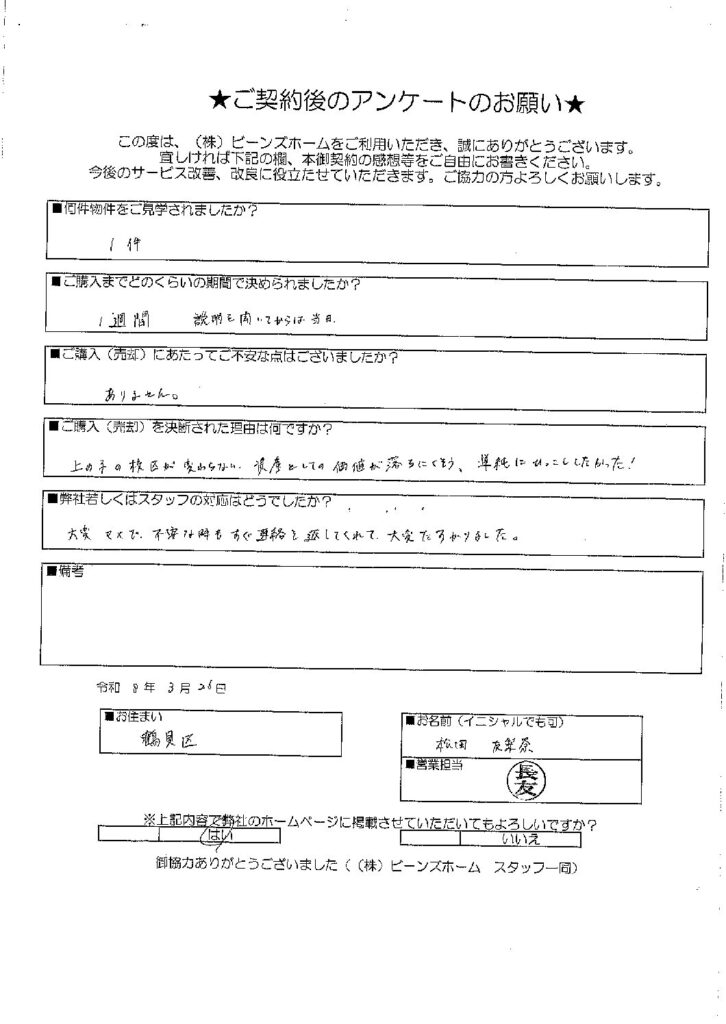 ★ご契約後のアンケートのお願い★
この度は、（株）ビーンズホームをご利用いただき、誠にありがとうございます。
宜しければ下記の欄、本御契約の感想等をご自由にお書きください。
今後のサービス改善、改良に役立たせていただきます。ご協力の方よろしくお願いします。
■何件物件をご見学されましたか？
1件
■ご購入までどのくらいの期間で決められましたか？
1週間 説明を聞いてからは当日
■ご購入（売却）にあたってご不安な点はございましたか？
ありません。
■ご購入（売却）を決断された理由は何ですか？
上の子の校区が変わらない 資産としての価値が落ちにくそう、単純にひっこししたかった！
■弊社若しくはスタッフの対応はどうでしたか？
大変 マメで、不安な時もすぐ連絡を返してくれて、大変たすかりました。
■備考
令和 8年 3月 28日
■お住まい
鶴見区
■お名前（イニシャルでも可）
松田 友梨奈
■営業担当
長友
※上記内容で弊社のホームページに掲載させていただいてもよろしいですか？
はい いいえ
御協力ありがとうございました（（株）ビーンズホーム スタッフ一同）